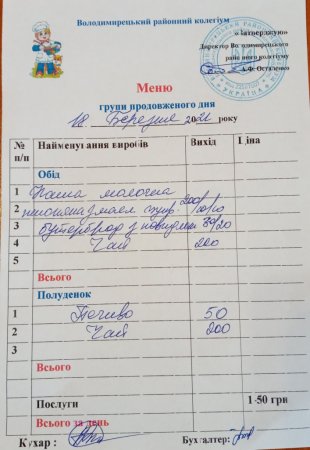 Володимирецький районний колегіум
«Затверджую»
Директор Володимирецького
районного колегіуму
А.Ф. Остапенко
УКРАЇНА
Меню
групи продовженого дня
18 Березня 2021 року
№ п/п Найменування виробів Вихід Ціна
Обід
1 Каша молочна
2 пшоняна з масл. 200/10/10
3 Бутерброд з повидлом 30/20
4 Чай 200
5
Всього
Полуденок
1 Печиво 50
2 Чай 200
3
Всього
Послуги 1-50 грн
Всього за день
Кухар: Бухгалтер: